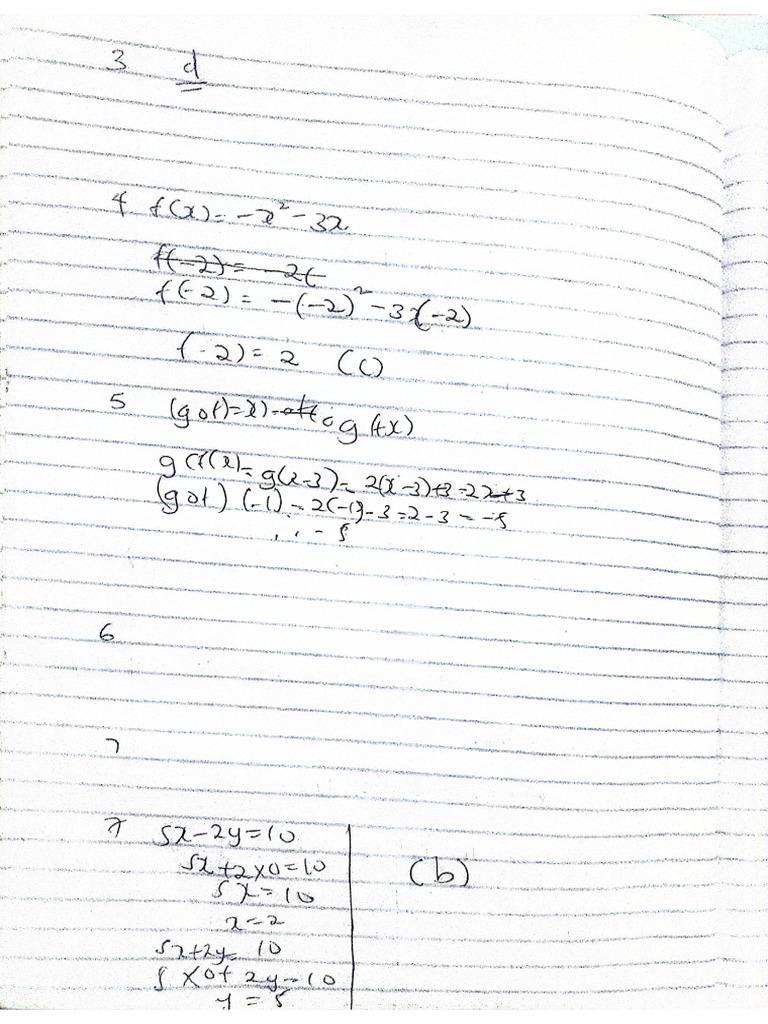 3 d
4 f(x) = -x² - 3x
f(-2) = -2(
f(-2) = -(-2)² - 3x(-2)
f(-2) = 2 (C)
5 (gof) = x) = g f(x)
g(f(x) = g(x-3) = 2(x-3)+3 = 2x+3
(gof) (-1) = 2(-1)-3 = 2-3 = -5
∴ -5
6
7
7 5x-2y=10
5x+2x0=10 (b)
5x=10
x=2
5x+2y= 10
5x0+2y=10
y=5